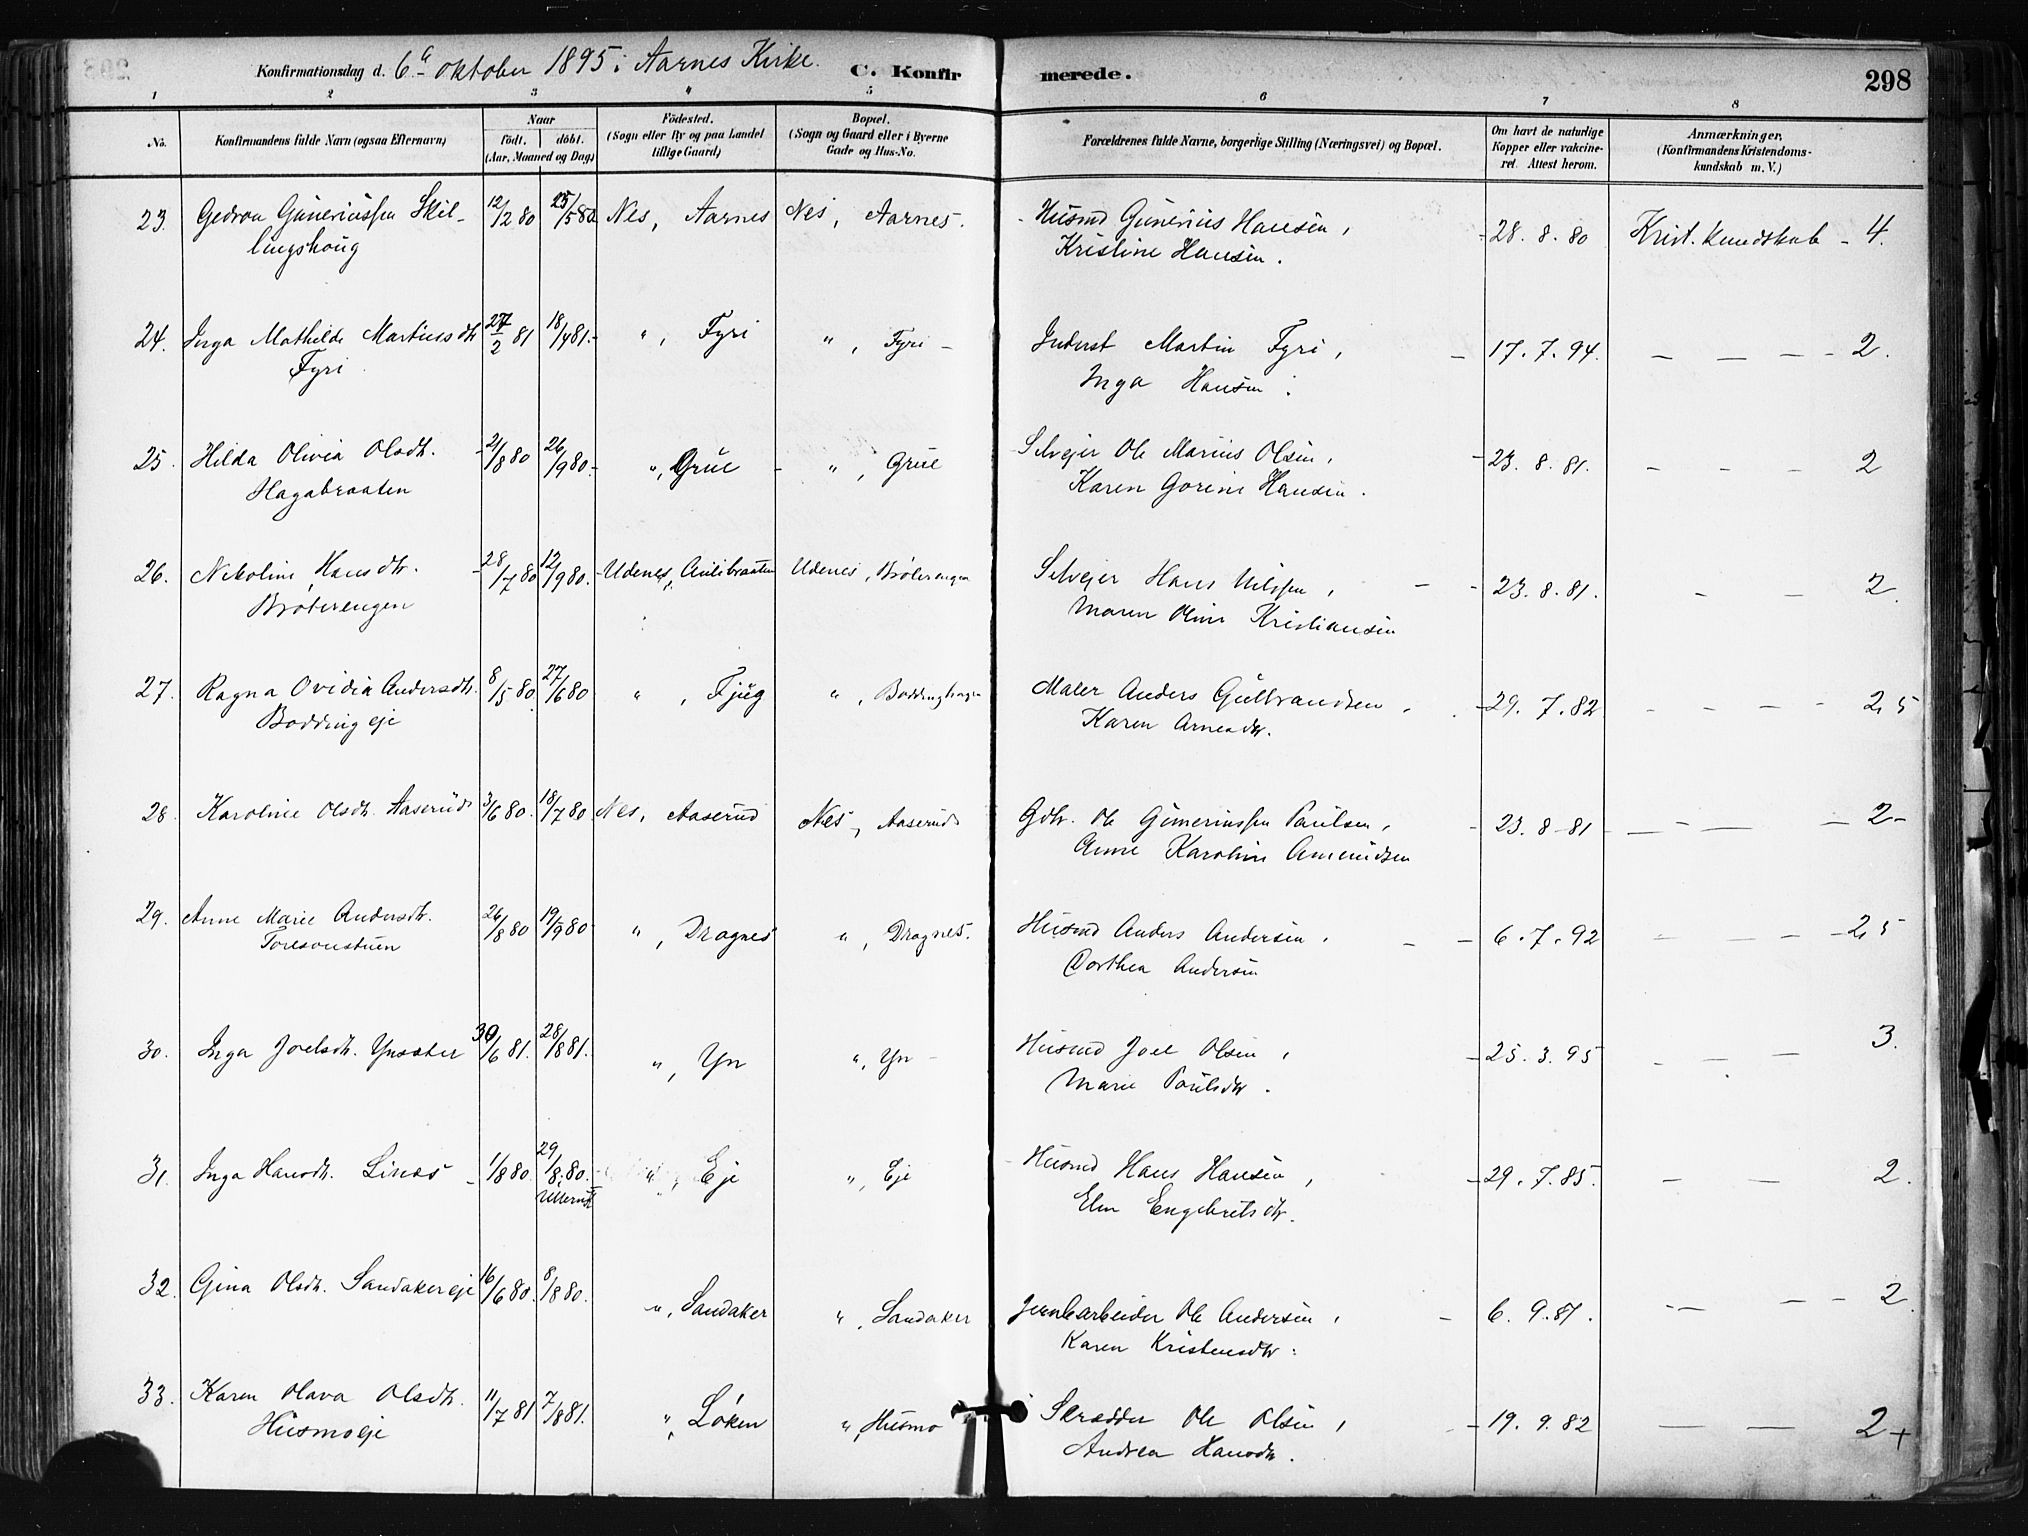 Konfirmationsdag d. 6te oktober 1895 i Aarnes Kirke. C. Konfirmerede. 298
1 2 3 4 5 6 7 8
No. Konfirmandens fulde Navn (ogsaa Efternavn) Naar födt. döbt. (Aar, Maaned og Dag) Födested. (Sogn eller By og paa Landet tillige Gaard) Bopæl. (Sogn og Gaard eller i Byerne Gade og Hus-No. Forældrenes fulde Navne, borgerlige Stilling (Næringsvei) og Bopæl. Om havt de naturlige Kopper eller vakcineret. Attest herom. Anmærkninger. (Konfirmandens Kristendomskundskab m. V.)
23. Gedvon Guneriussen Skil- 12/2 80 25/5 80 Nes, Aarnes Nes, Aarnes. Husmd Gunerius Hansen, - 28. 8. 80 Krist. kundskab - 4.
lingshoug Kristine Hansen.
24. Inga Mathilde Martinsdtr 27/2 81 18/4 81. " , Fyri " , Fyri - Inderst Martin Fyri, - 17. 7. 94. — — — - 2.
Fyri Inga Hansen.
25. Hilda Olivia Olsdtr. 21/8 80 26/9 80. " , Grue - " , Grue Selvejer Ole Marius Olsen, - 23. 8. 81. - - - 2
Hagabraaten Karen Gorine Hansen.
26. Nikoline Hansdtr. 28/7 80 12/9 80. Udenes, Aulibraaten Udenes, Bröterengen Selvejer Hans Nilssen, - - 23. 8. 81. - - 2
Bröterengen Maren Oline Kristiansen
27. Ragna Ovidia Andersdtr. 8/5 80. 27/6 80 " , Fjug " , Boddinghagen Maler Anders Gulbrandsen, - 29. 7. 82 - - - - 2,5
Boddingeje Karen Arnesdtr.
28. Karoline Olsdtr. Aaserud 3/6 80. 18/7 80 Nes, Aaserud Nes, Aaserud Gdbr. Ole Guneriussen Paulsen, - 23. 8 - 81 — - — — 2-
Anne Karoline Amundsen
29. Anne Marie Andersdtr. 26/8 80 19/9 80 " , Dragnes " , Dragnes. Husmd Anders Andersen, - - 6. 7. 92 — — - - 2,5
Toresonstuen Dorthea Andersen
30. Inga Joelsdtr. Ynsæter 30/6 81. 28/8 81. " , Yn " , Yn - Husmd Joel Olsen, - 25. 3. 95 - — - 3.
Marie Paulsdtr.
31. Inga Hansdtr. Linaes - 1/8 80 29/8 80. " , Eje " , Eje Husmd Hans Hansen, - 29. 7. 85. — — 2.
Ullernd Elen Engebretsdtr.
32. Gina Olsdtr. Sandakereje 16/6 80. 8/8 80. " , Sandaker " , Sandaker Jernbarbeider Ole Andersen, - 6. 9. 81. -— — - 2.
Karen Kristensdtr.
33. Karen Olava Olsdtr. 11/7 81 7/8 81. " , Løken " , Husmo Skrædder Ole Olsen, - 19. 9. 82 — — 2+
Husmoeje Andrea Hansdtr.